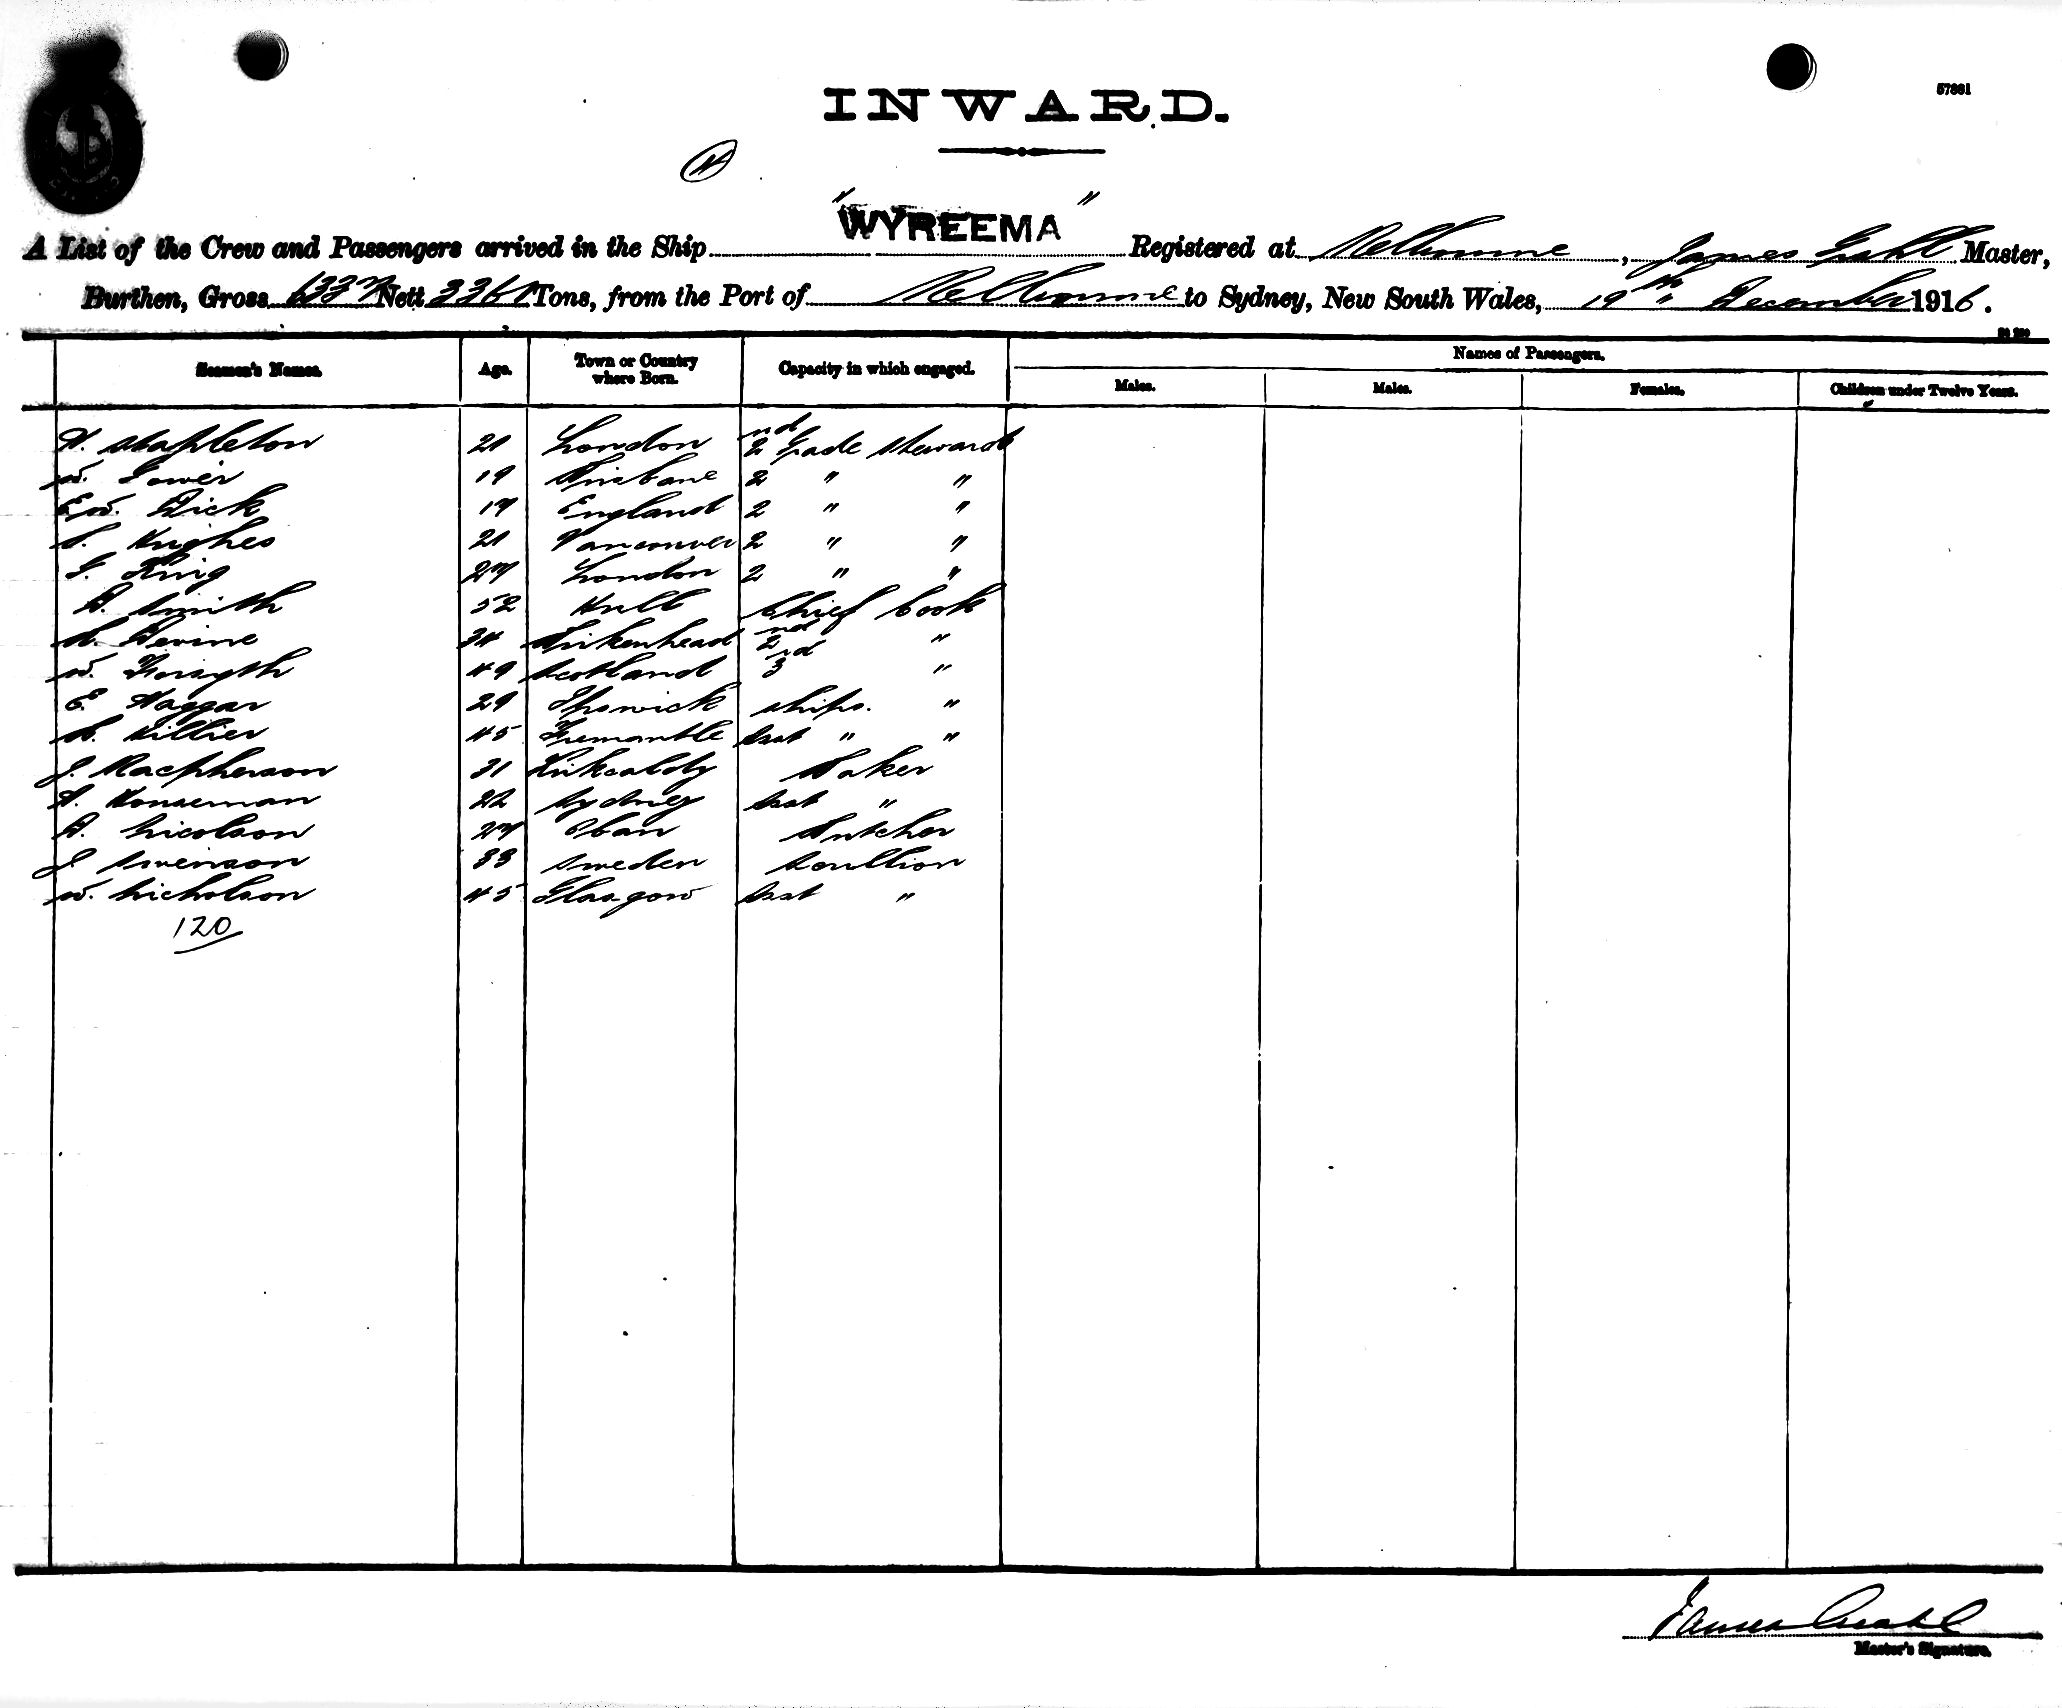 INWARD.
57881
4
"WYREEMA"
A List of the Crew and Passengers arrived in the Ship Registered at Melbourne, James Grahl Master,
Burthen, Gross 6337 Nett 3361 Tons, from the Port of Melbourne to Sydney, New South Wales, 19th December 1916.
Seamen's Names. Age. Town or Country where Born. Capacity in which engaged. Names of Passengers.
Males. Males. Females. Children under Twelve Years.
Stapleton 21 London 2nd Grade Steward
W. Gower 19 Brisbane 2 " "
E.W. Dick 17 England 2 " "
S. Hughes 21 Vancouver 2 " "
G. King 27 London 2 " "
A. Smith 52 Hull Chief Cook
Devine 34 Birkenhead 2nd "
W. Forsyth 49 Scotland 3rd "
E. Haggar 29 Ipswick Ships. "
Hillier 45 Fremantle Asst " "
J. Macpherson 31 Kirkcaldy Baker
H. Houseman 22 Sydney Asst "
A. Nicolson 27 Oban Butcher
J. Swenson 33 Sweden Scullion
W. Nicholson 45 Glasgow Asst "
120
James Grahl
Master's Signature.